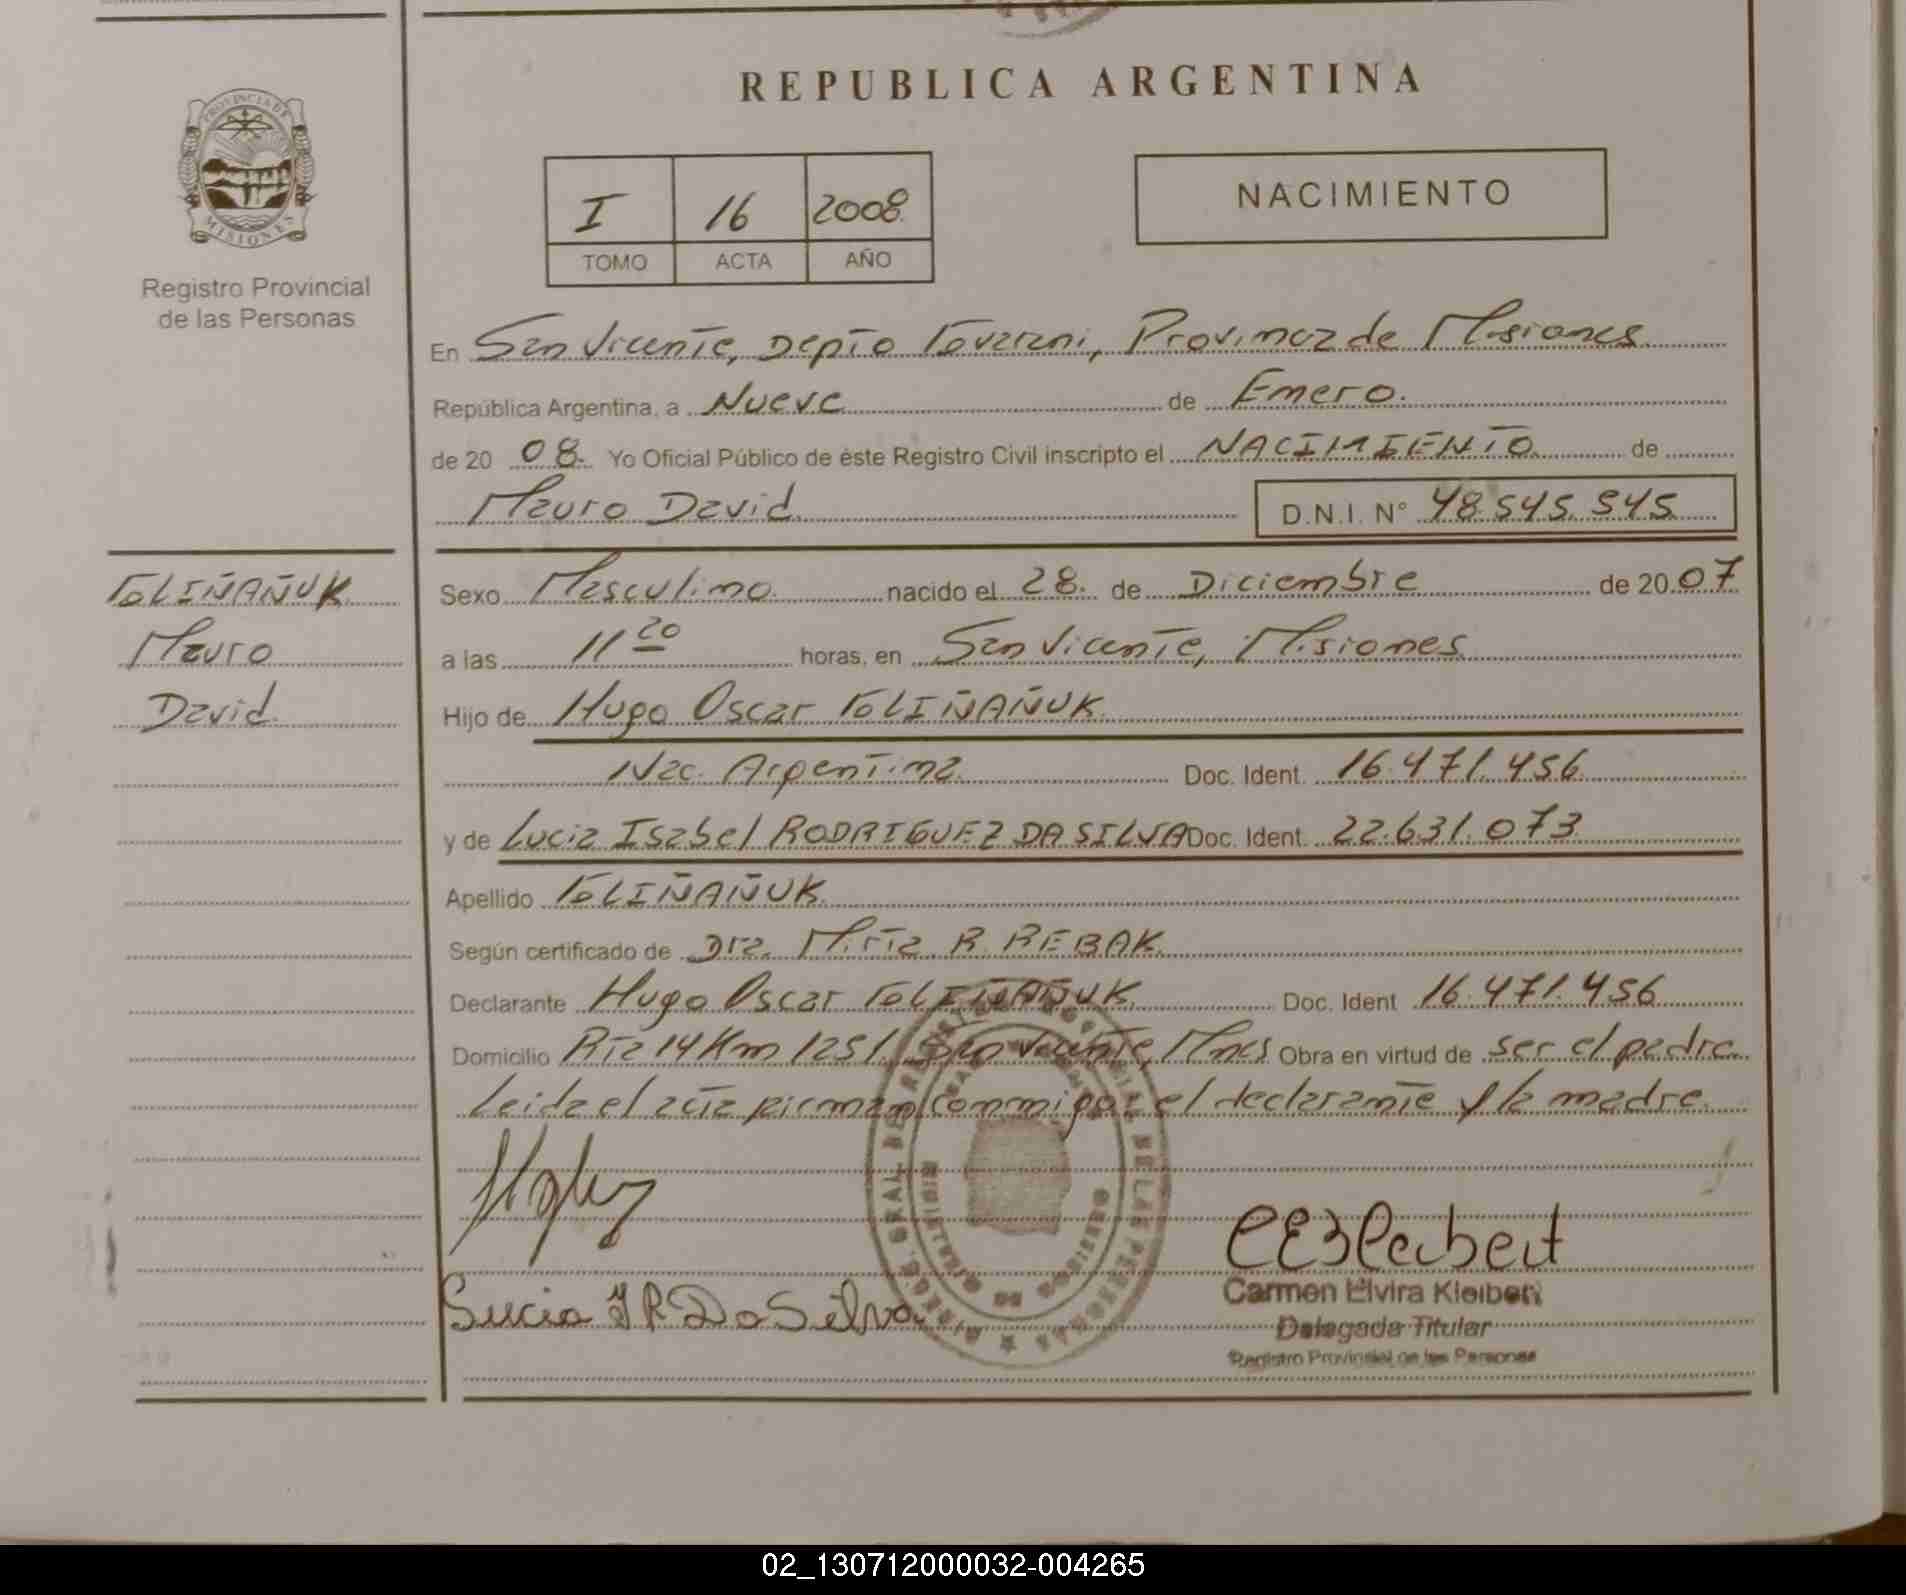 REPUBLICA ARGENTINA
PROVINCIA DE
MISIONES
Registro Provincial
de las Personas
I 16 2008
TOMO ACTA AÑO
NACIMIENTO
En San Vicente, Depto Guarani, Provincia de Misiones
República Argentina, a Nueve de Enero.
de 20 08. Yo Oficial Público de éste Registro Civil inscripto el NACIMIENTO de
Mauro David D.N.I. N° 48.545.545
GOLIÑAÑUK
Mauro
David
Sexo Masculino nacido el 28. de Diciembre de 20 07
a las 11 20 horas, en San Vicente, Misiones
Hijo de Hugo Oscar GOLIÑAÑUK
Nac. Argentina Doc. Ident. 16.471.456
y de Lucia Isabel RODRIGUEZ DA SILVA Doc. Ident. 22.631.073
Apellido GOLIÑAÑUK
Según certificado de Dra. Mirta R. REBAK
Declarante Hugo Oscar GOLIÑAÑUK Doc. Ident 16.471.456
Domicilio Rta 14 Km 1251 San Vicente, Mnes Obra en virtud de ser el padre
Leida el acta firman conmigo el declarante y la madre
Lucia I R Da Silva
Carmen Elvira Kleibert
Delegada Titular
Registro Provincial de las Personas
02_130712000032-004265